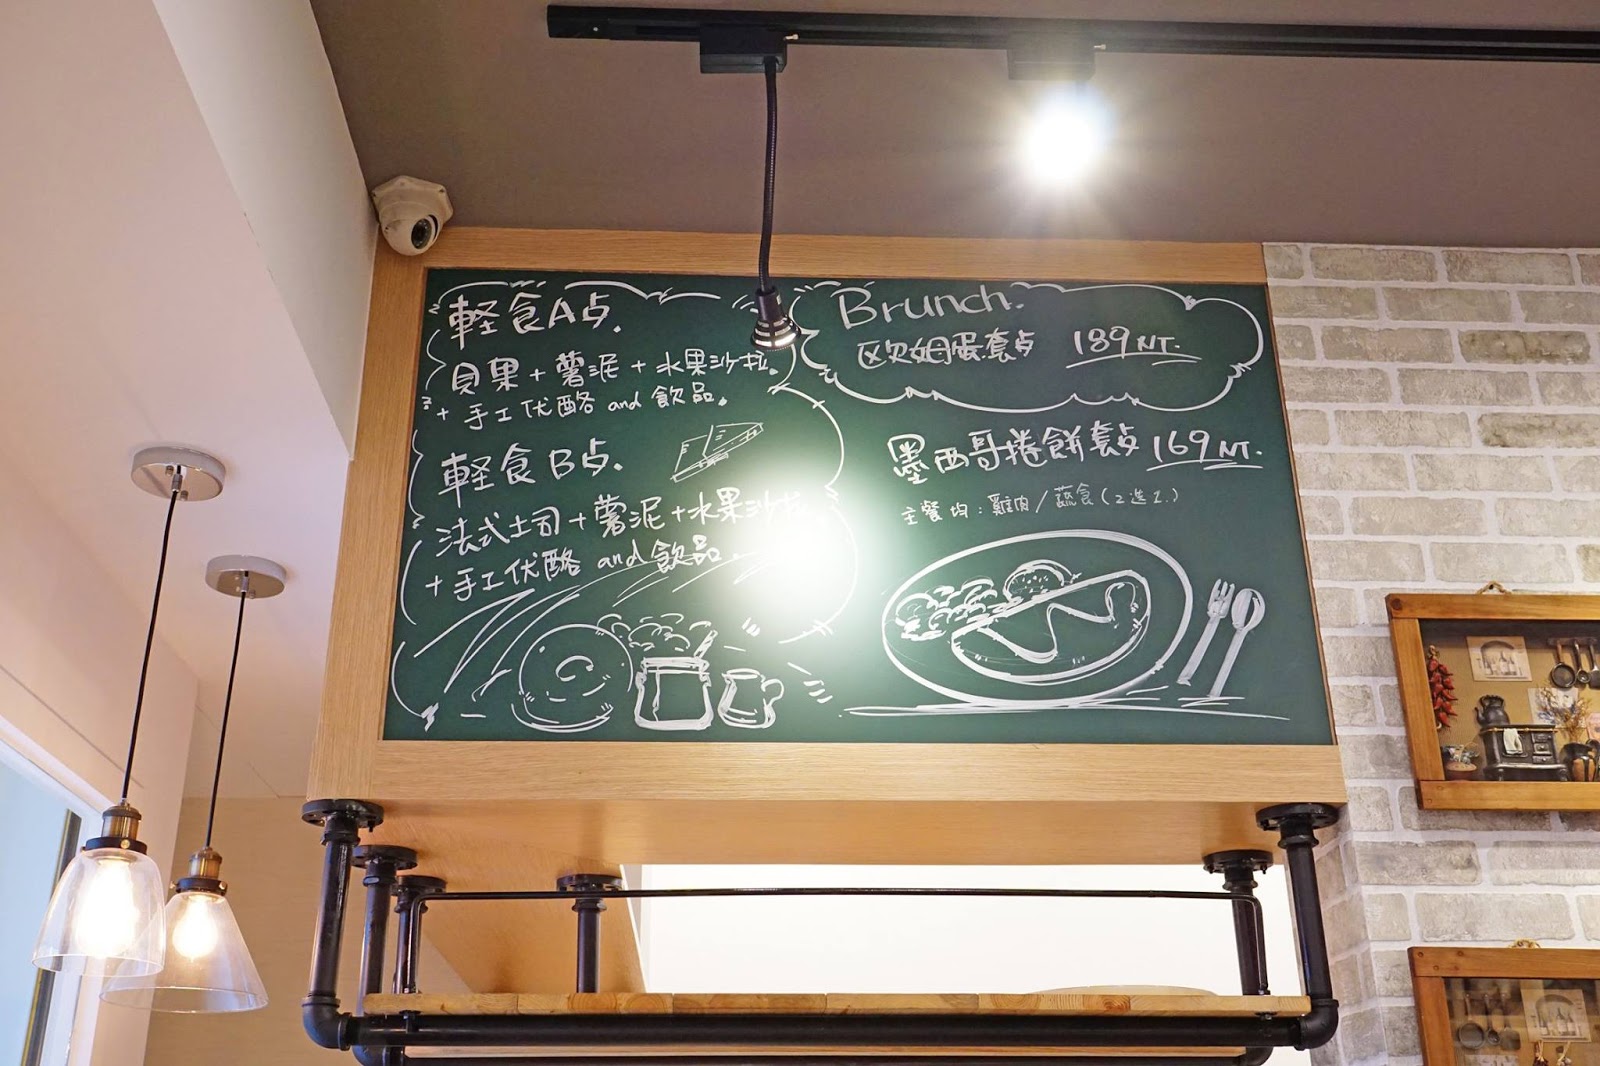 軽食A点.
貝果 + 薯泥 + 水果沙拉。
+ 手工优酪 and 飲品。
軽食B点.
法式土司 + 薯泥 + 水果沙拉
+ 手工优酪 and 飲品.
Brunch.
欧姆蛋套点 189NT.
墨西哥捲餅套点 169NT.
主餐均:雞肉/蔬食(2选1.)